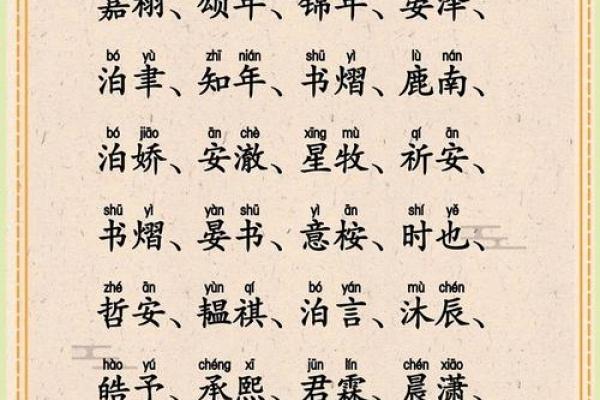 嘉栩、颂年、锦年、晏泽、
bó yù zhī nián shū yì lù nán
泊聿、知年、书熠、鹿南、
bó jiāo ān chè xīng mù qí ān
泊娇、安澈、星牧、祈安、
shū yì yàn shū yì ān shí yě
书熠、晏书、意桉、时也、
zhé ān yùn qí bó yán mù chén
哲安、韫祺、泊言、沐辰、
hào yú chéng xī jūn lín chén xiāo
皓予、承熙、君霖、晨潇、